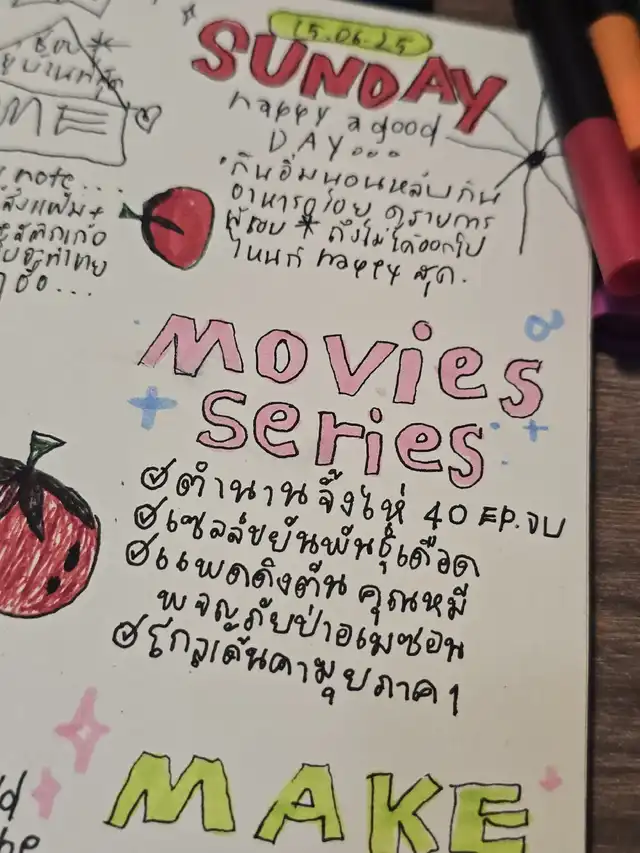 15.06.25
SUNDAY
happy a good
DAY...
กินอิ่มนอนหลับกิน
อาหารอร่อย ดูรายการ
ที่ชอบ * ถึงไม่ได้ออกไป
ไหนก็ happy สุด.
ME
note...
MOVIES
series
ตำนานจิ้งไห่ 40 EP.จบ
เซลล์ขยันพันธุ์เดือด
แพดดิงตัน คุณหมี
ผจญภัยป่าอเมซอน
โกลเด้นคามุยภาค 1
MAKE